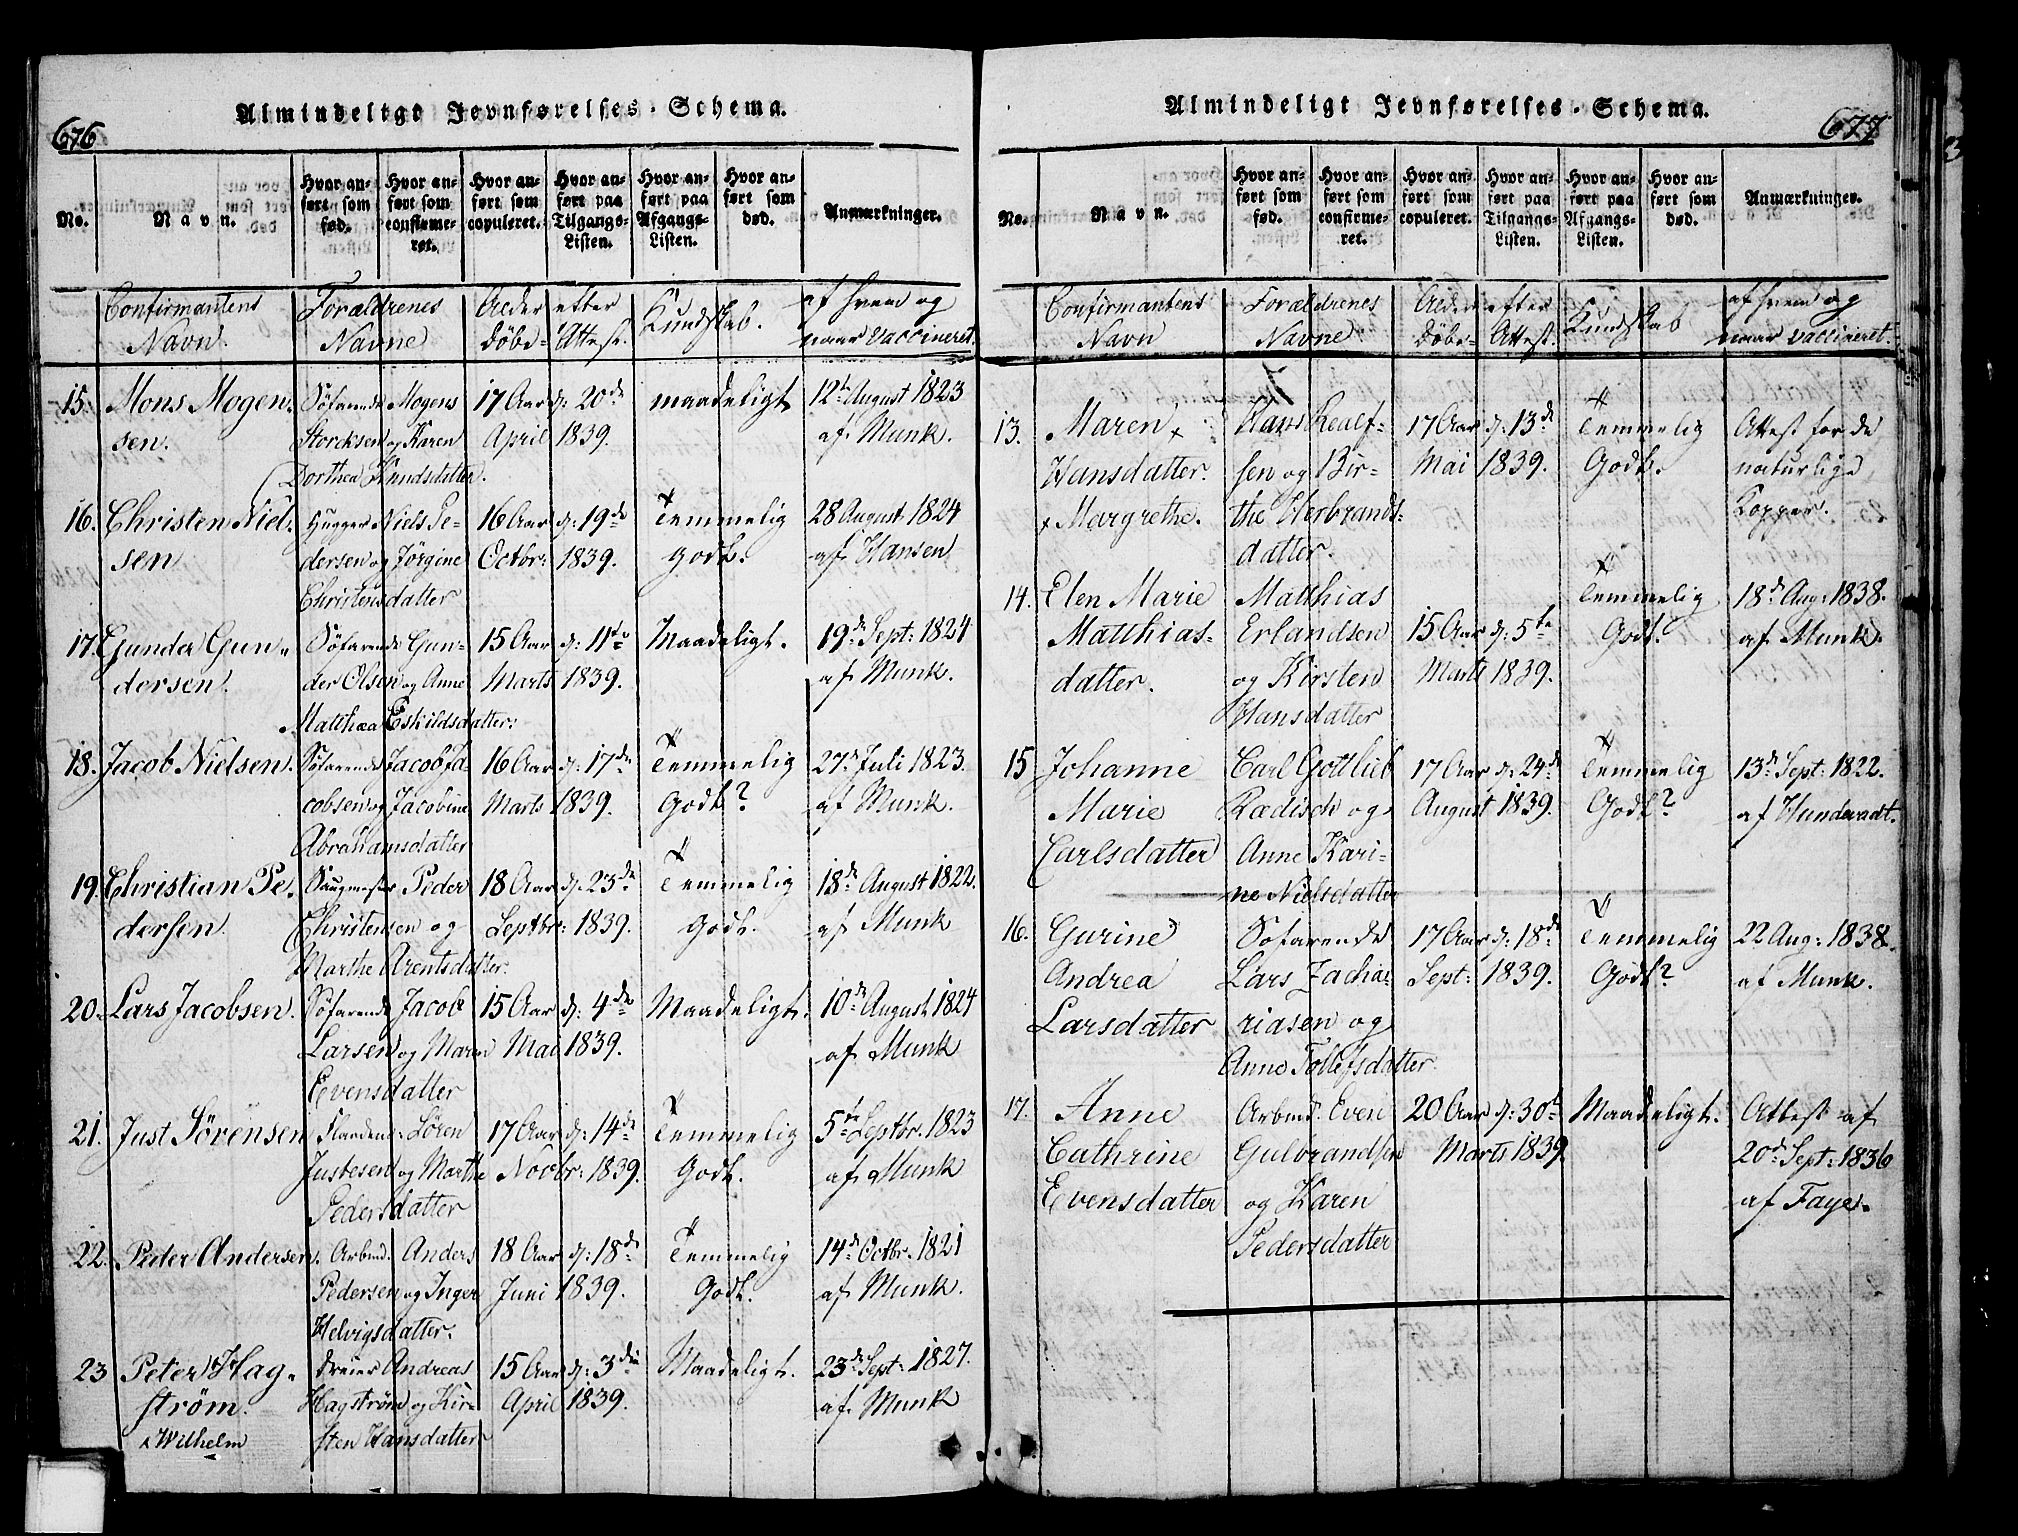 676
Almindeligt Jevnførelses-Schema.
No.
Navn.
Hvor anført som fød.
Hvor anført som confirmeret.
Hvor anført som copuleret.
Hvor anført paa Tilgangs-Listen.
Hvor anført paa Afgangs-Listen.
Hvor anført som død.
Anmærkninger.
Confirmantens Forældrenes Alder efter Kundskab. af hvem og
Navn. Navne Døbe-Attest. naar vaccineret.
15. Mons Mogen- Søfarende Mogens 17 Aar d: 20de maadeligt 12te August 1823
sen. Storcksen og Karen April 1839. af Munk.
Dorthea Knudsdatter.
16. Christen Niel- Hugger Niels Pe- 16 Aar d: 19de Temmelig 28 August 1824
sen dersen og Jörgine Octbr: 1839. godt. af Hansen
Christensdatter
17. Gunder Gun- Söfarende Gun- 15 Aar d: 11te Maadeligt. 19de Sept: 1824
dersen. der Olsen og Anne Marts 1839. af Munk.
Matthæa Eskildsdatter:
18. Jacob Nielsen. Söfarende Jacob Ja- 16 Aar d: 17de Temmelig 27de Juli 1823.
cobsen og Jacobine Marts 1839. Godt? af Munk.
Abrahamsdatter
19. Christian Pe- Saugmester Peder 18 Aar d. 23de Temmelig 18de August 1822.
dersen. Christensen og Septbr: 1839. Godt. af Munk
Marthe Arentsdatter.
20. Lars Jacobsen. Söfarende Jacob 15 Aar d: 4de Maadeligt. 10de August 1824
Larsen og Maren Mai 1839. af Munk
Evensdatter
21. Just Sörensen Sören 17 Aar d: 14de Temmelig 5te Septbr. 1823
Justesen og Marthe Novbr: 1839. Godt. af Munk
Pedersdatter
22. Peder Andersen. Arbmd. Anders 18 Aar d: 18de Temmelig 14de Octbr. 1821
Pedersen og Inger Juni 1839. Godt. af Munk.
Helvigsdatter.
23 Peter Hag- Dreier Andreas 15 Aar d: 3die Maadeligt. 23de Sept: 1827.
ström. Hagström og Kir- April 1839. af Munk
x Wilhelm sten Hansdatter
677
Almindeligt Jevnførelses-Schema.
No.
Navn.
Hvor anført som fød.
Hvor anført som confirmeret.
Hvor anført som copuleret.
Hvor anført paa Tilgangs-Listen.
Hvor anført paa Afgangs-Listen.
Hvor anført som død.
Anmærkninger.
Confirmantens Forældrenes Alder efter Kundskab af hvem og
Navn Navne Døbe-Attest. naar vaccineret.
13. Maren x Hans Realf- 17 Aar d: 13de Temmelig Attest for de
Hansdatter. sen og Bir- Mai 1839. Godt. naturlige
x Margrethe. the Herbrands- Kopper.
datter.
14. Elen Marie Matthias Temmelig 18de Aug: 1838.
Matthias- Erlandsen 15 Aar d: 5te Godt. af Munk.
datter. og Kirsten Marts 1839.
Hansdatter
15 Johanne Carl Gottlieb 17 Aar d: 24de Temmelig 13de Sept: 1822.
Marie Rædisch og August 1839. Godt? af Hundevadt.
Carlsdatter Anne Kari-
ne Nielsdatter
16. Gurine Söfarende 17 Aar d: 18de Temmelig 22 Aug: 1838.
Andrea Lars Zacha- Sept: 1839. Godt? af Munk.
Larsdatter riasen og
Anne Tollefsdatter.
17. Anne Arbmd. Even 20 Aar d: 30te Maadeligt. Attest af
Cathrine Gulbrandsen Marts 1839. 20de Sept: 1836
Evensdatter og Karen af Faye.
Pedersdatter